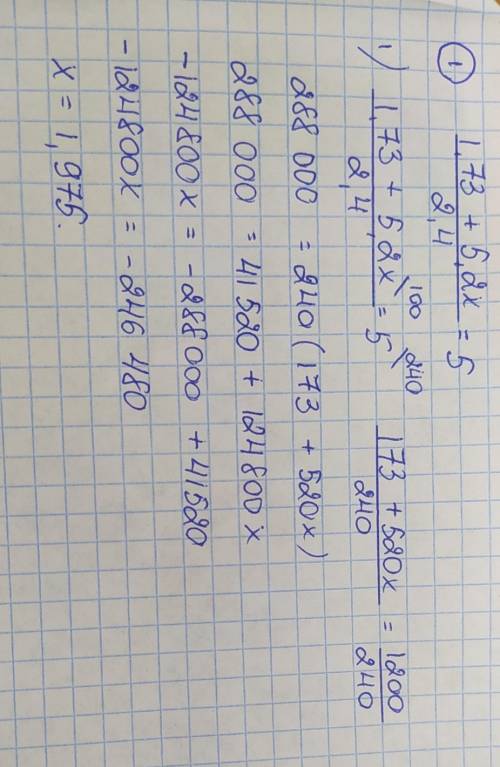 ① (1,73 + 5,2x)/2,4 = 5
1) (1,73 + 5,2x \100)/2,4 = 5 \240 (173 + 520x)/240 = 1200/240
288 000 = 240 (173 + 520x)
288 000 = 41520 + 124800x
-124800x = -288000 + 41520
-124800x = -246 480
x = 1,975.